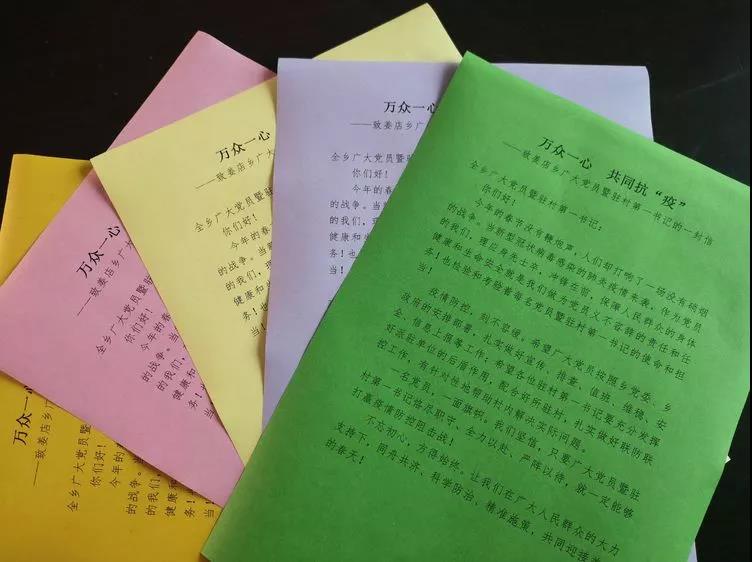 万众一心
——致姜店乡广
全乡广大党员暨
你们好！
今年的
的战争。当
的我们，
健康和
务！
当
万众一心
——致姜店乡广
全乡广大党员暨
你们好！
今年的春
的战争。当
的我们，
健康和
务！
当
万众一心
——致姜店乡广大
全乡广大党员暨驻
你们好！
今年的春
的战争。当新
的我们，理
健康和生
务！也
当！
万众一心
——致姜店乡广
全乡广大党员暨驻村
你们好！
今年的春
的战争。当
的我们，理
健康和
务！
当！
万众一心 共同抗“疫”
——致姜店乡广大党员暨驻村第一书记的一封信
全乡广大党员暨驻村第一书记：
你们好！
今年的春节没有鞭炮声，人们却打响了一场没有硝烟
的战争。当新型冠状病毒感染的肺炎疫情来袭，作为党员
的我们，理应身先士卒，冲锋在前，保障人民群众的身体
健康和生命安全就是我们做为党员义不容辞的责任和任
务！也检验和考验着每全党员暨驻村第一书记的使命和担
当！
疫情防控，刻不容缓。希望广大党员按照乡党委、乡
政府的安排部署，扎实做好宣传、排查、值班、维稳、安
全、信息上报等工作；希望各位驻村第一书记要充分发挥
好派驻单位的后盾作用，配合好所驻村，扎实做好联防联
控工作，有针对性地帮助村内解决实际问题。
一名党员，一面旗帜。我们坚信，只要广大党员暨驻
村第一书记恪尽职守、全力以赴、严阵以待，就一定能够
打赢疫情防控阻击战！
不忘初心，方得始终。让我们在广大人民群众的大力
支持下，同舟共济、科学防治、精准施策，共同迎接美
的春天！